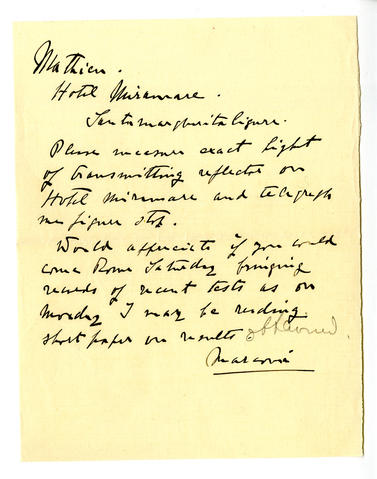 Mathieu.
Hotel Miramare.
Santamargheritaligure.
Please measure exact hight
of transmitting reflector on
Hotel Miramare and telegraph
me figure stop.
Would appreciate if you could
come Rome Saturday bringing
records of recent tests as on
Monday I may be reading
short paper on results obtained.
Marconi